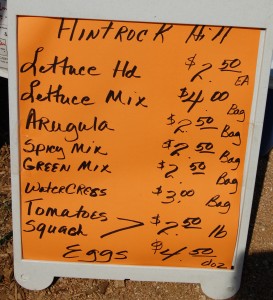 Flintrock Hill
Lettuce Hd $2.50 EA
Lettuce Mix $4.00 Bag
Arugula $2.50 Bag
Spicy Mix $2.50 Bag
GREEN Mix $2.50 Bag
WATERCRESS $3.00 Bag
Tomatoes
Squash > $2.50 lb
Eggs $4.50 doz.